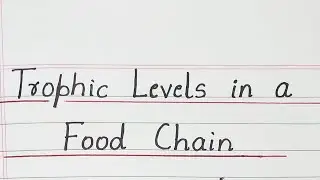 Trophic Levels in a
Food Chain